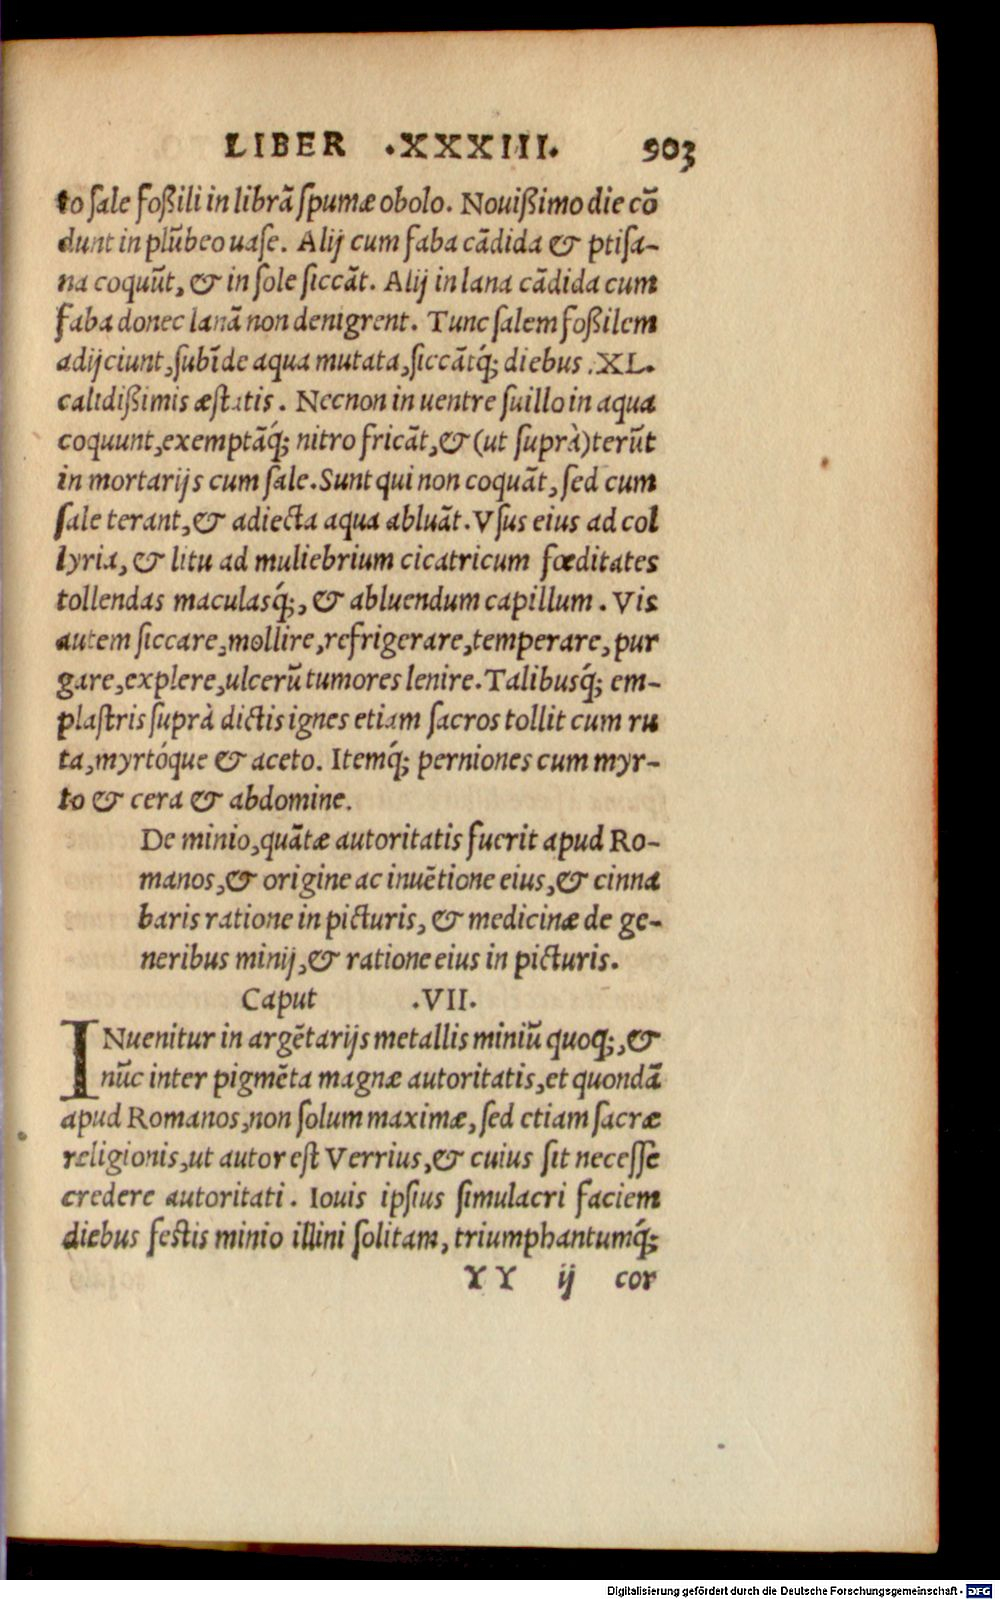 LIBER .XXXIII. 903
to sale foßili in librā ſpumæ obolo. Nouißimo die cō
dunt in plūbeo uaſe. Alij cum faba cādida & ptiſa-
na coquūt, & in ſole ſiccāt. Alij in lana cādida cum
faba donec lanā non denigrent. Tunc ſalem foßilem
adijciunt, ſubīde aqua mutata, ſiccātq́; diebus .XL.
calidißimis æſtatis. Necnon in uentre ſuillo in aqua
coquunt, exemptāq́; nitro fricāt, & (ut ſuprà) terūt
in mortarijs cum ſale. Sunt qui non coquāt, ſed cum
ſale terant, & adiecta aqua abluāt. Vſus eius ad col
lyria, & litu ad muliebrium cicatricum fœditates
tollendas maculasq́;, & abluendum capillum. Vis
autem ſiccare, mollire, refrigerare, temperare, pur
gare, explere, ulcerū tumores lenire. Talibusq́; em-
plaſtris ſuprà dictis ignes etiam ſacros tollit cum ru
ta, myrtóque & aceto. Itemq́; perniones cum myr-
to & cera & abdomine.
De minio, quātæ autoritatis fuerit apud Ro-
manos, & origine ac inuētione eius, & cinna
baris ratione in picturis, & medicinæ de ge-
neribus minij, & ratione eius in picturis.
Caput .VII.
INuenitur in argētarijs metallis miniū quoq;, &
nūc inter pigmēta magnæ autoritatis, et quondā
apud Romanos, non ſolum maximæ, ſed etiam ſacræ
religionis, ut autor eſt Verrius, & cuius ſit neceſſe
credere autoritati. Iouis ipſius ſimulacri faciem
diebus feſtis minio illini ſolitam, triumphantumq́;
YY ij cor
Digitalisierung gefördert durch die Deutsche Forschungsgemeinschaft - DFG